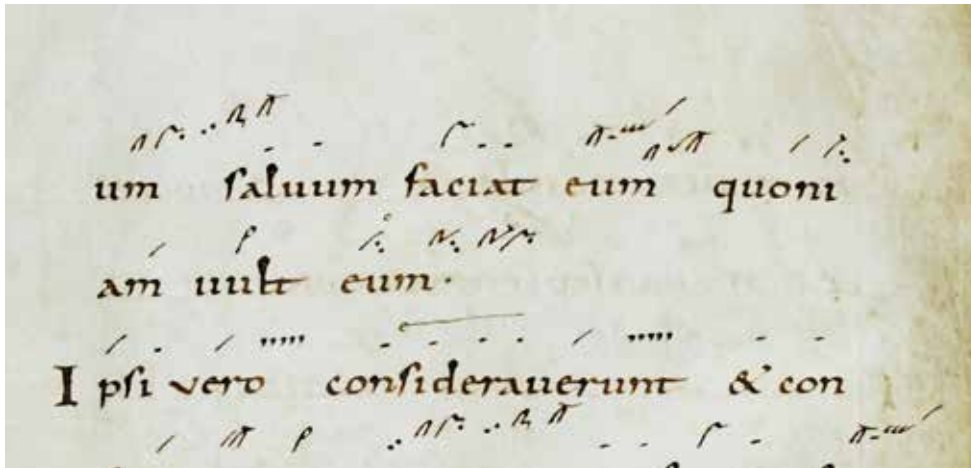 um saluum faciat eum quoni
am uult eum.
Ipsi vero considerauerunt & con